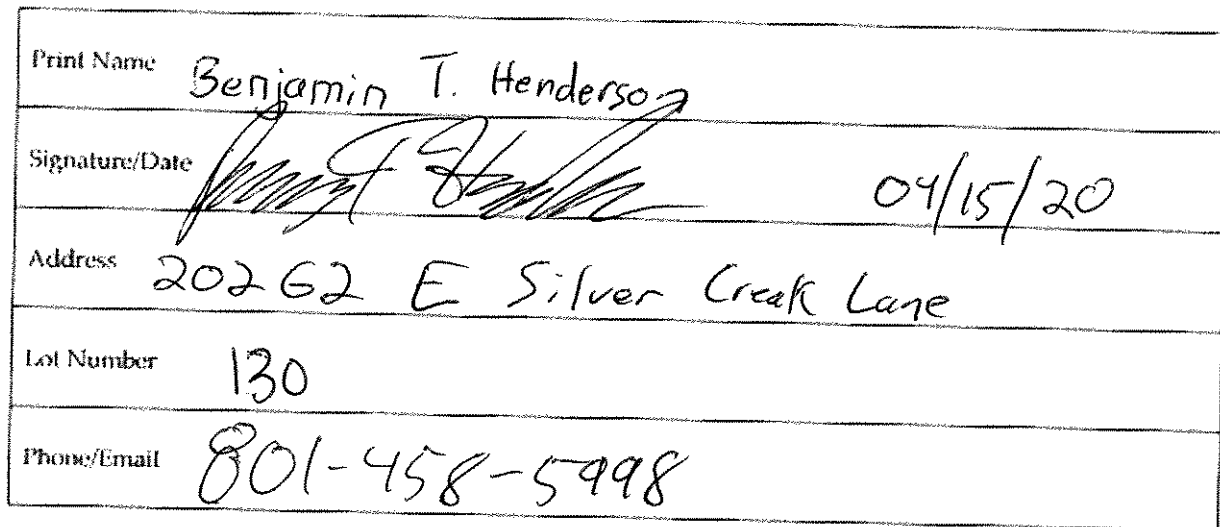 Print Name Benjamin T. Henderson
Signature/Date 04/15/20
Address 20262 E Silver Creak Lane
Lot Number 130
Phone/Email 801-458-5998